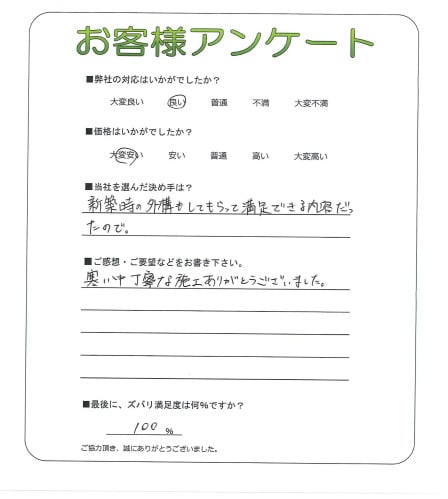 お客様アンケート
■弊社の対応はいかがでしたか?
大変良い 良い 普通 不満 大変不満
■価格はいかがでしたか?
大変安い 安い 普通 高い 大変高い
■当社を選んだ決め手は?
新築時の外構もしてもらって満足できる内容だっ
たので。
■ご感想・ご要望などをお書き下さい。
寒い中丁寧な施工ありがとうございました。
■最後に、ズバリ満足度は何%ですか?
100 %
ご協力頂き、誠にありがとうございました。